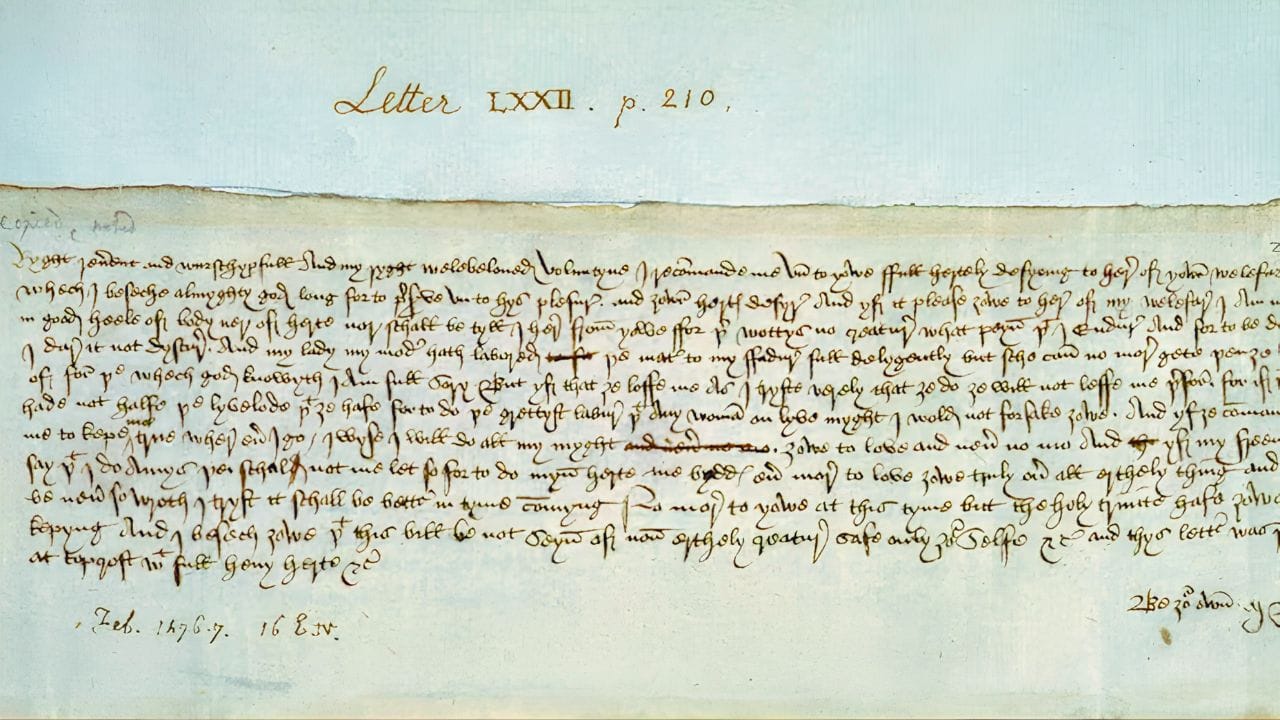 Letter LXXII. p. 210.
Copied, noted
Ryght reu'ent and wurschypfull And my ryght welebeloued Voluntyne I reco͞mande me vn to yowe ffull hertely desyring to her' off yowr welefar
whech I beseche almyghty god long for to p'serve vn to hys plesur'. and zowr hert' desyr' And yf it please zowe to her' off my welefar' I Am
in good heele off body ner off herte nor schall be tyll I her' from yowe ffor þ' wottys no creatur' what peyn þt I Endur' And for to be
I dar' it not dyscur'. And my lady my mod' hath labored þe mat' to my ffadur full delygently but sche can no mor' gete þen ze
off for þe whech god knowyth I Am full Sory But yf that ze loffe me As I tryste verely that ze do ze will not leffe me þ'for. for if
hade not halfe þe lyvelode þt ze hafe for to do þe grettyst labur þt Any woman on lyve myght I wold not forsake zowe. And yf ze
me to kepe me true wher eu' I go, I wyse I will do all my myght zowe to love and neu' no mo And yf my
say þt I do Amys þei schall not me let so for to do myn herte me bydd' eu' mor' to love zowe truly ou' all erthely thing and
be neu' so wroth I tryst it schall be bett' in tyme co͞myng No mor' to yowe at this tyme but the holy trinite hafe zowe
kepyng And I besech zowe þt this bill be not Seyn off non erthely creatur' safe only zor Selfe &c and thys lett' was
at topcroft wt full heuy herte &c
Be zor own
Feb. 1476-7. 16 E. IV.